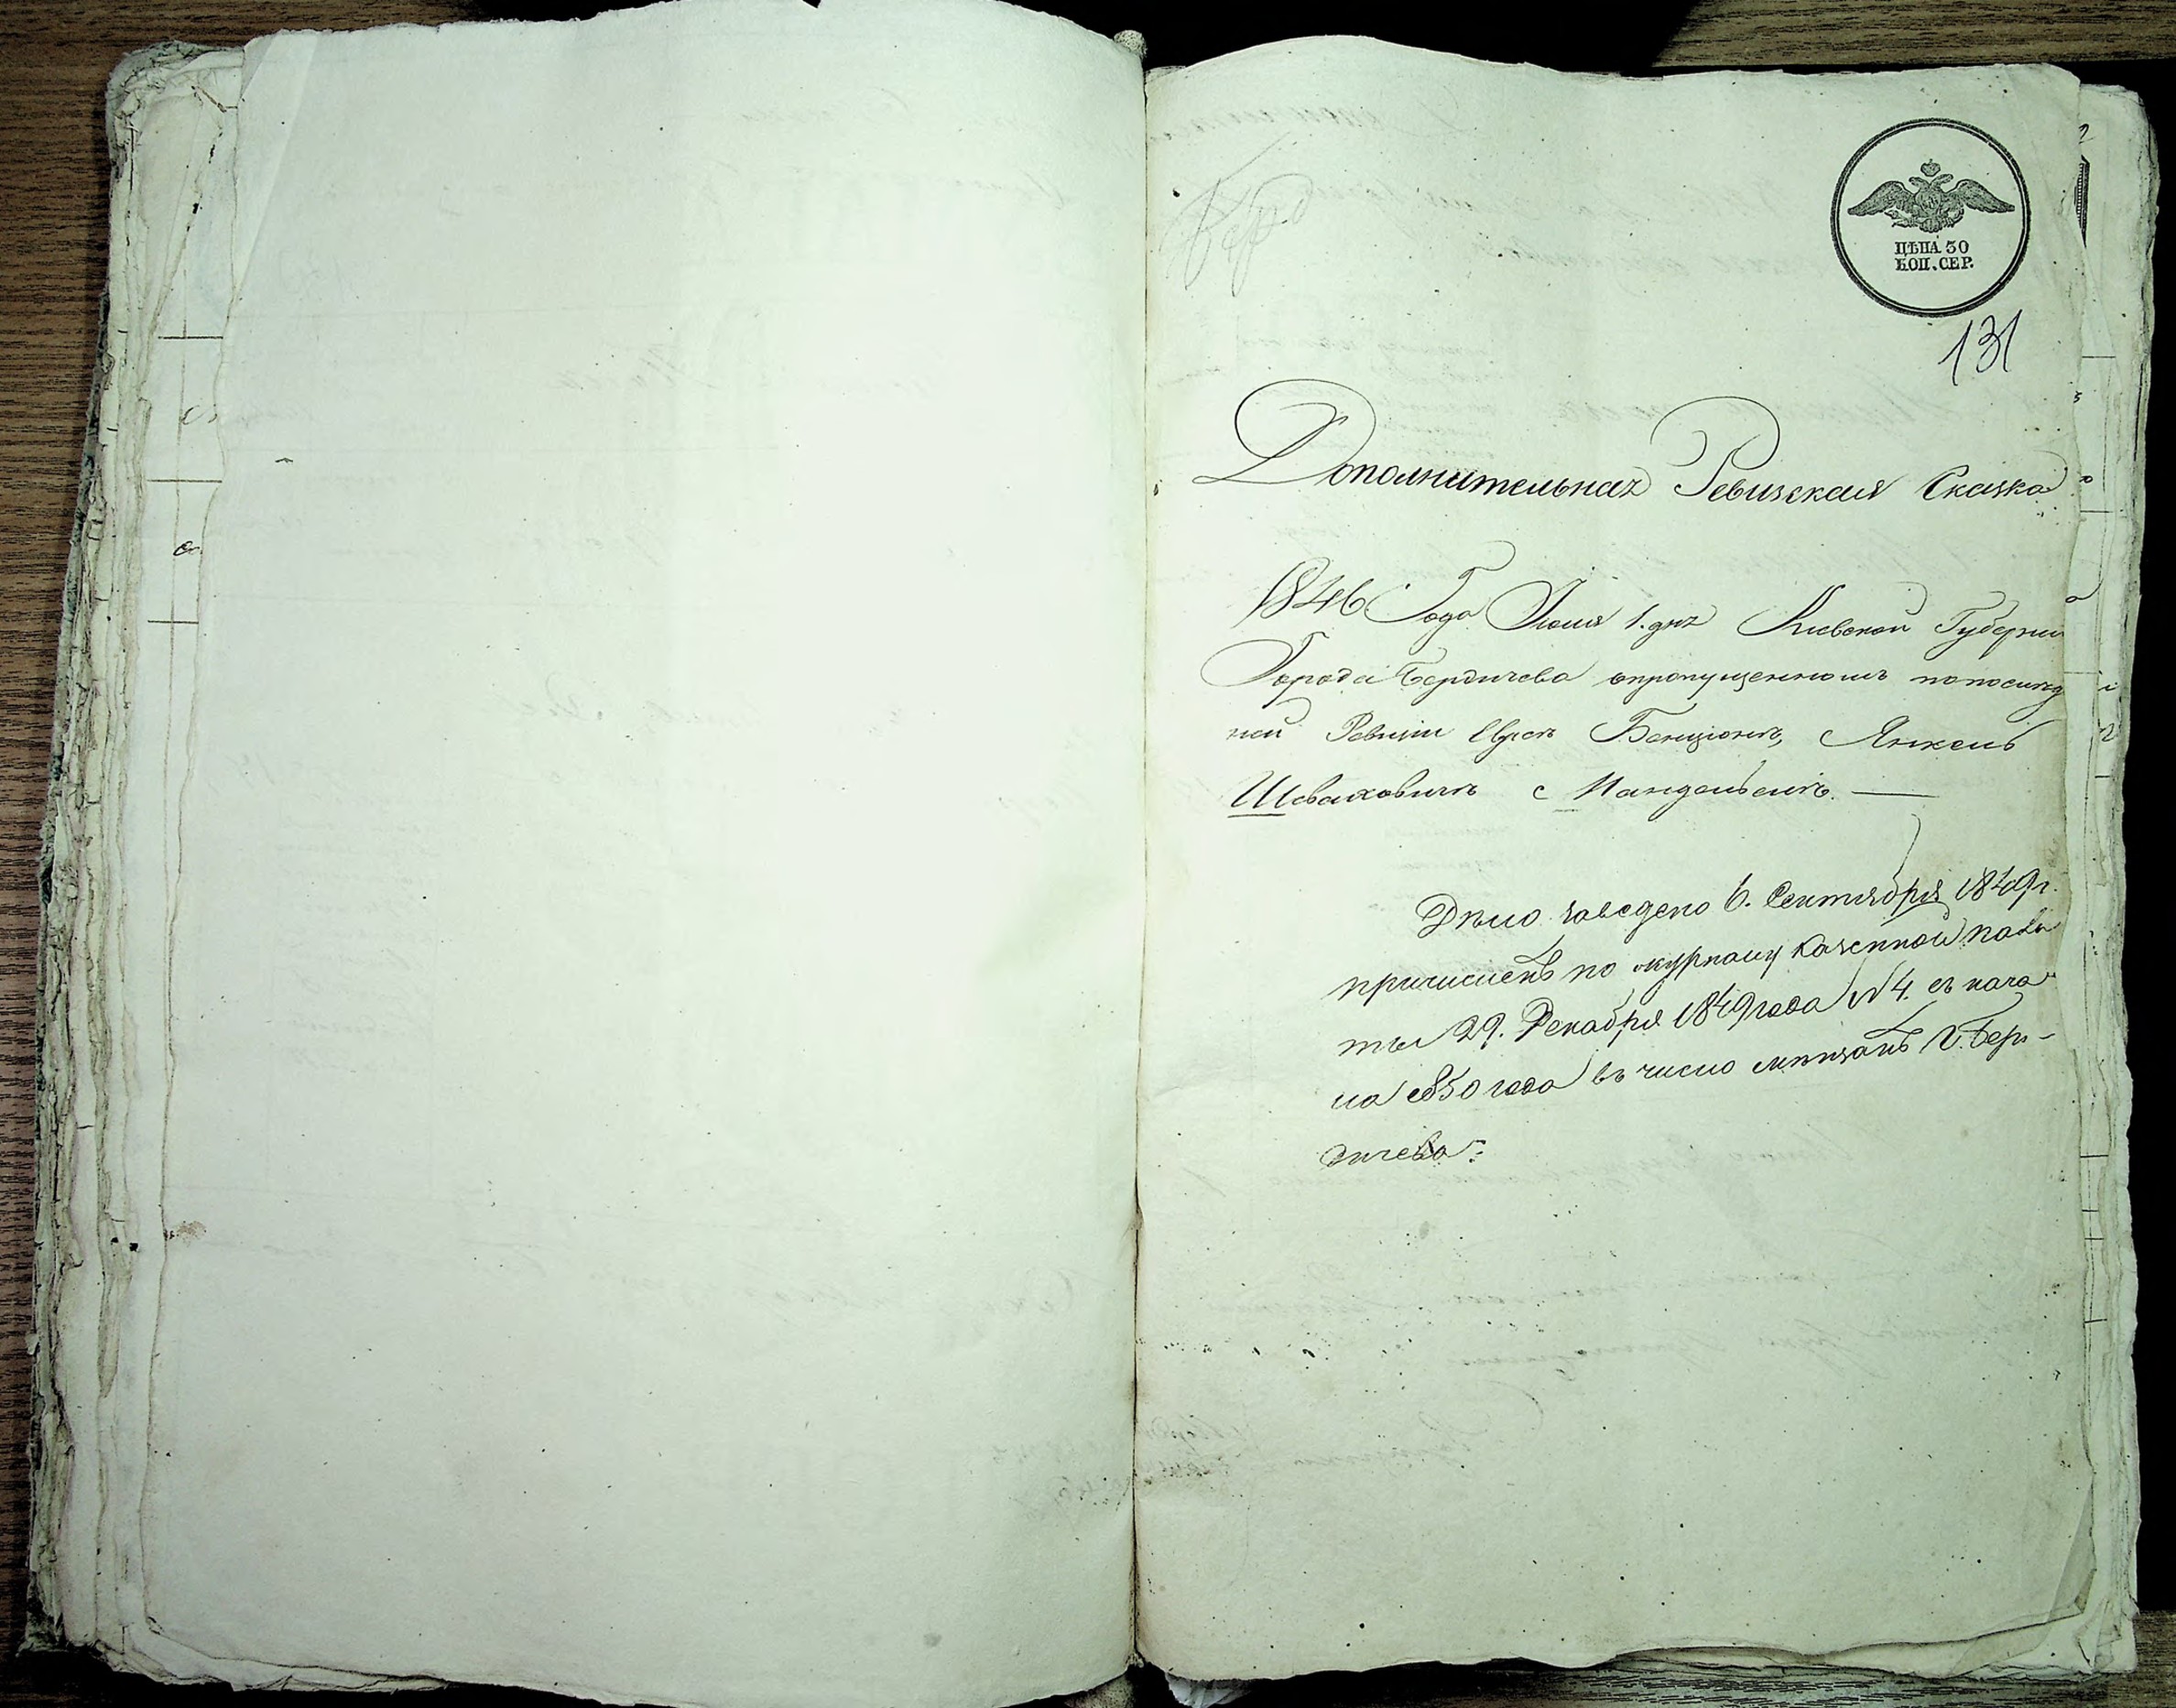 Берд
ЦѢНА 30
КОП. СЕР.
131
Дополнительная Ревизская Сказка
1846 Года Июля 1. дня Киевской Губернии
Города Бердичева опропущенномъ попослѣд
ней Ревизіи Евреѣ Бенціонъ, Янкель
Шваховичъ с Мандельемъ.
Дѣло заведено 6. Сентября 1849 г.
причисленъ по журналу казенной пала
ты 29. Декабря 1849 года № 4. съ нача
ла 1850 года въ число мѣщанъ г. Бер-
дичева.